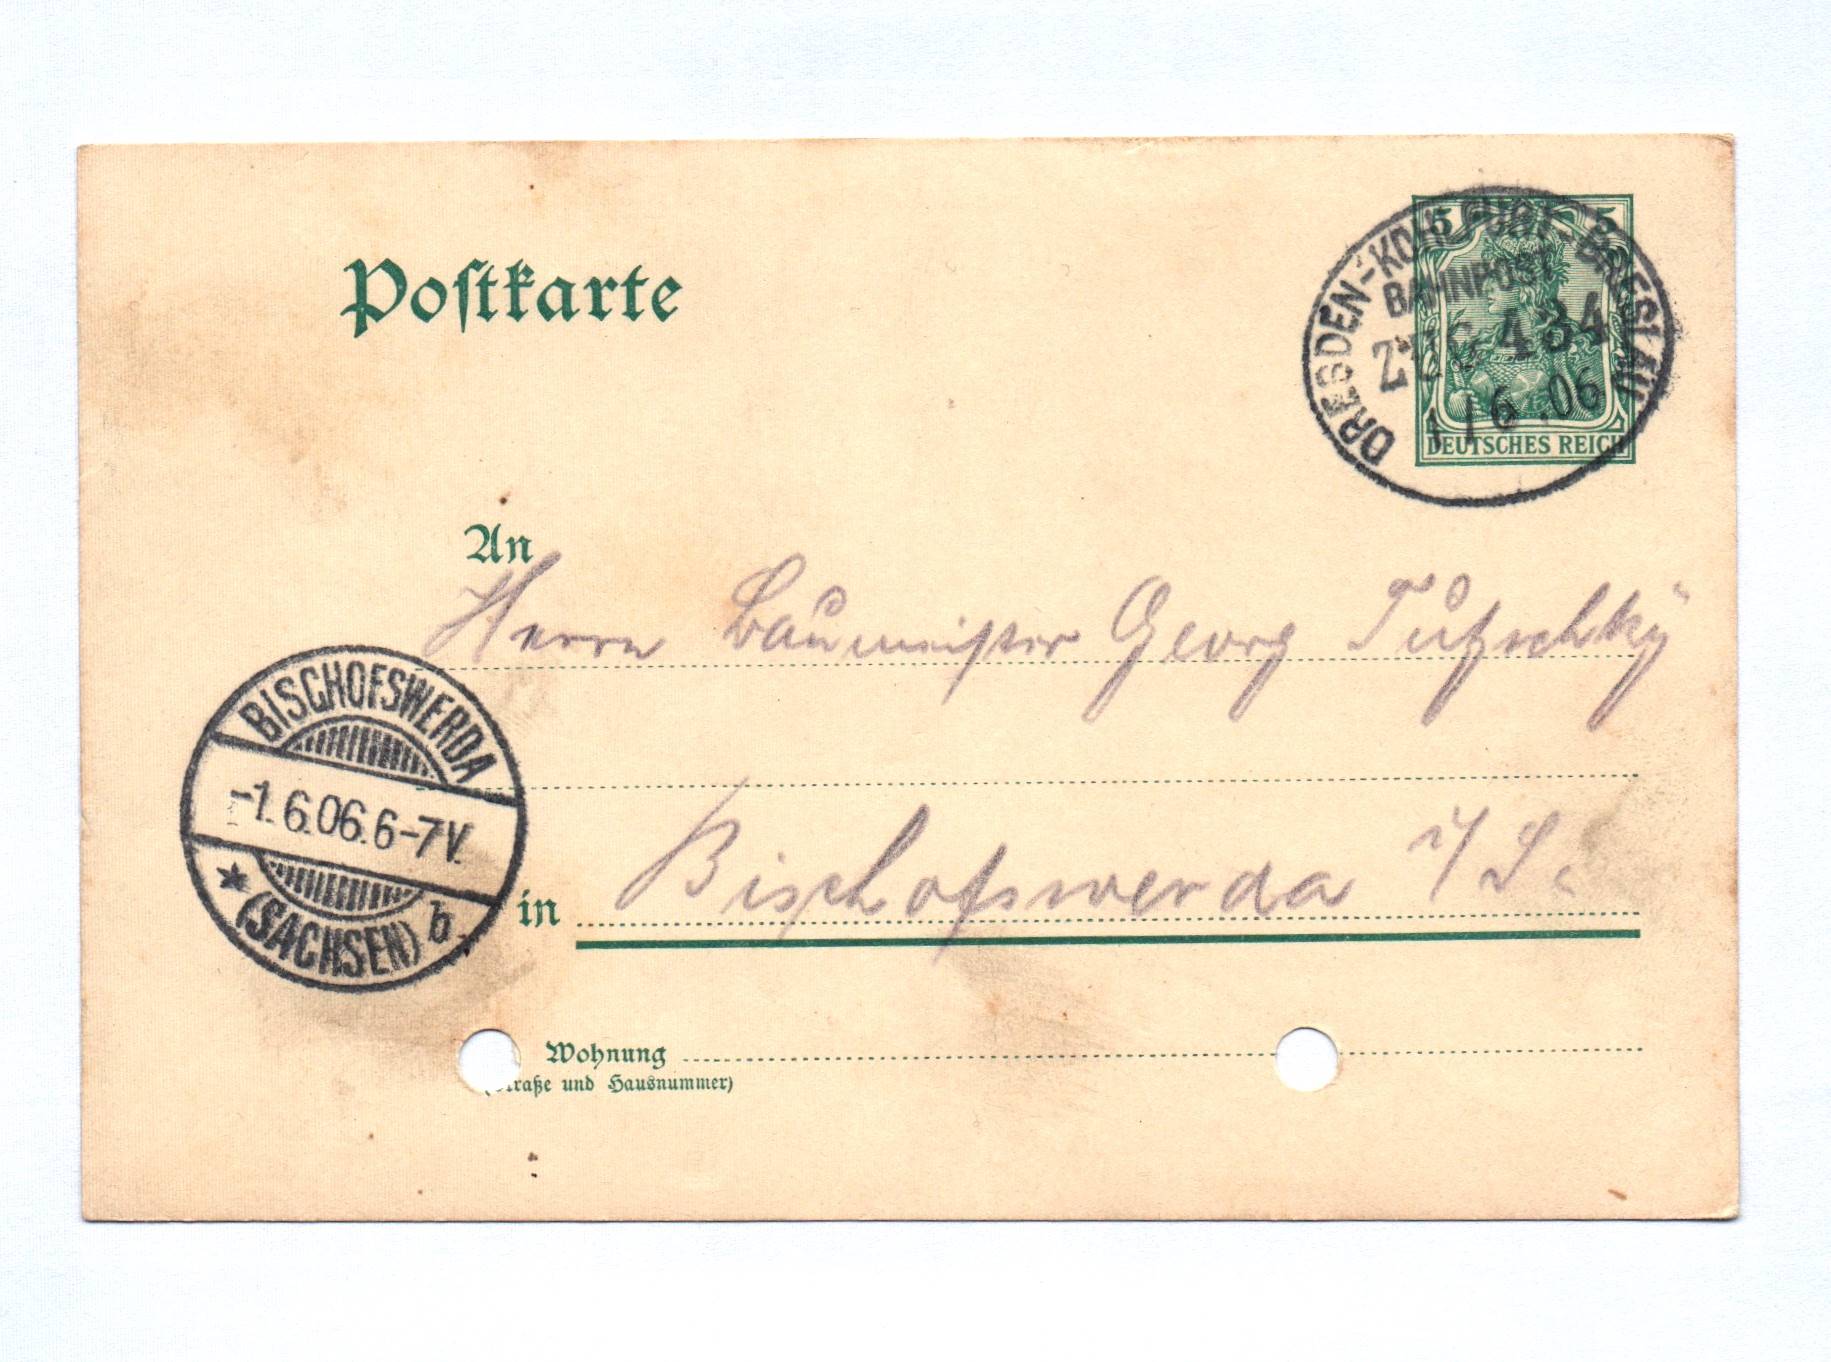 Postkarte
5 5
DEUTSCHES REICH
DRESDEN-KOHLFURT-BRESLAU
BAHNPOST
ZUG 434
1 / 6 .06
An
Herrn Baumeister Georg Tutzschky
BISCHOFSWERDA
-1.6.06.6-7V.
* (SACHSEN) b.
in Bischofswerda i/S.
Wohnung
(Straße und Hausnummer)